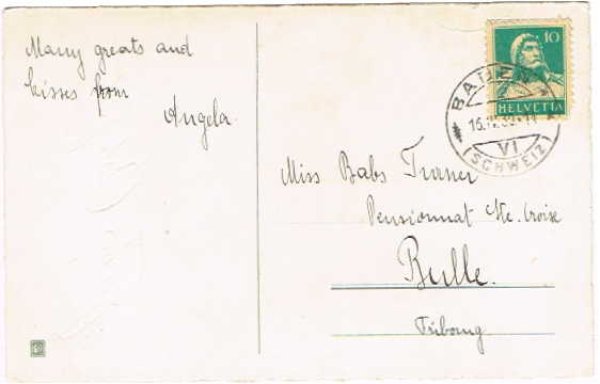 Many greats and
kisses from
Angela.
10
HELVETIA
BADEN
VI
(SCHWEIZ)
Miss Babs
Pensionnat Ste. Croix
Bulle.
Fribourg